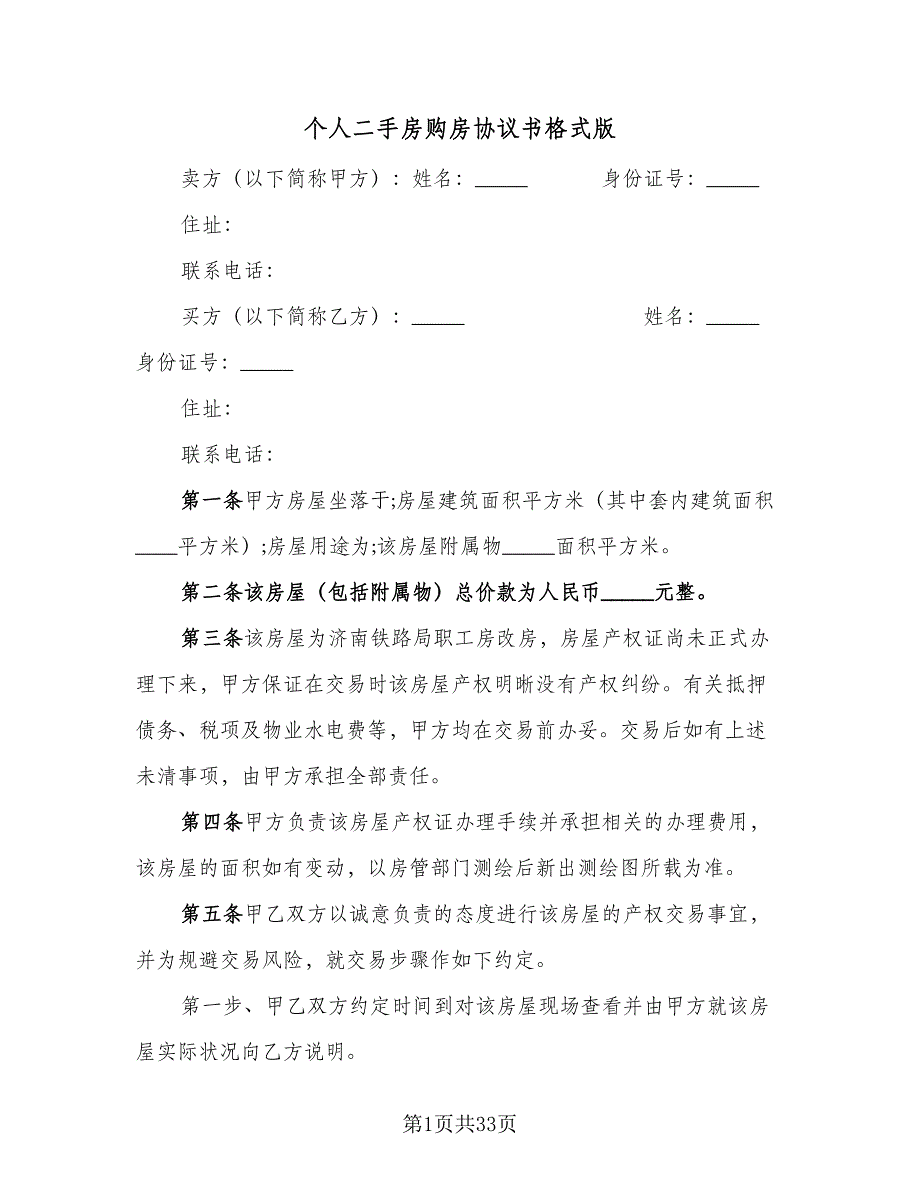 个人二手房购房协议书格式版
卖方（以下简称甲方）：姓名：_____ 身份证号：_____
住址：
联系电话：
买方（以下简称乙方）：_____ 姓名：_____
身份证号：_____
住址：
联系电话：
第一条甲方房屋坐落于;房屋建筑面积平方米（其中套内建筑面积
____平方米）;房屋用途为;该房屋附属物_____面积平方米。
第二条该房屋（包括附属物）总价款为人民币_____元整。
第三条该房屋为济南铁路局职工房改房，房屋产权证尚未正式办
理下来，甲方保证在交易时该房屋产权明晰没有产权纠纷。有关抵押
债务、税项及物业水电费等，甲方均在交易前办妥。交易后如有上述
未清事项，由甲方承担全部责任。
第四条甲方负责该房屋产权证办理手续并承担相关的办理费用，
该房屋的面积如有变动，以房管部门测绘后新出测绘图所载为准。
第五条甲乙双方以诚意负责的态度进行该房屋的产权交易事宜，
并为规避交易风险，就交易步骤作如下约定。
第一步、甲乙双方约定时间到对该房屋现场查看并由甲方就该房
屋实际状况向乙方说明。
第1页共33页